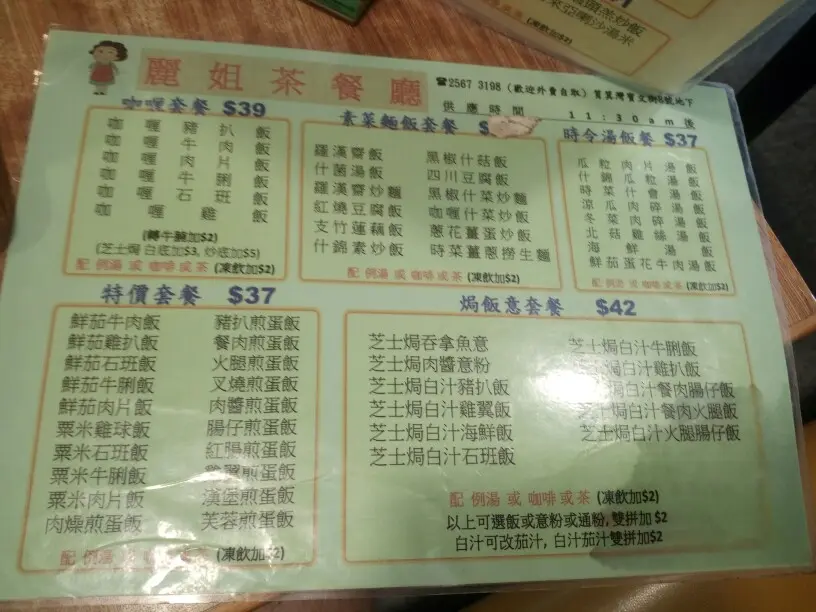 麗姐茶餐廳
☎2567 3198 (歡迎外賣自取) 筲箕灣寶文街8號地下
供應時間 11:30am 後
咖喱套餐 $39
咖喱豬扒飯
咖喱牛肉飯
咖喱肉片飯
咖喱牛脷飯
咖喱石班飯
咖喱雞飯
(轉牛腩加$2)
(芝士焗 白底加$3, 炒底加$5)
配 例湯 或 咖啡 或 茶 (凍飲加$2)
素菜麵飯套餐
羅漢齋飯 黑椒什菇飯
什菌湯飯 四川豆腐飯
羅漢齋炒麵 黑椒什菜炒麵
紅燒豆腐飯 咖喱什菜炒飯
支竹蓮藕飯 蔥花薑蛋炒飯
什錦素炒飯 時菜薑蔥撈生麵
配 例湯 或 咖啡 或 茶 (凍飲加$2)
時令湯飯餐 $37
瓜粒肉片湯飯
什錦瓜粒湯飯
時菜什會湯飯
涼瓜肉碎湯飯
冬菜肉碎湯飯
北菇雞絲湯飯
海鮮湯飯
鮮茄蛋花牛肉湯飯
配 例湯 或 咖啡 或 茶 (凍飲加$2)
特價套餐 $37
鮮茄牛肉飯 豬扒煎蛋飯
鮮茄雞扒飯 餐肉煎蛋飯
鮮茄石班飯 火腿煎蛋飯
鮮茄牛脷飯 叉燒煎蛋飯
鮮茄肉片飯 肉醬煎蛋飯
粟米雞球飯 腸仔煎蛋飯
粟米石班飯 紅腸煎蛋飯
粟米牛脷飯 翼煎蛋飯
粟米肉片飯 漢堡煎蛋飯
肉燥煎蛋飯 芙蓉煎蛋飯
配 例湯 或 咖啡 或 茶 (凍飲加$2)
焗飯意套餐 $42
芝士焗吞拿魚意 芝士焗白汁牛脷飯
芝士焗肉醬意粉 焗白汁雞扒飯
芝士焗白汁豬扒飯 焗白汁餐肉腸仔飯
芝士焗白汁雞翼飯 芝士焗白汁餐肉火腿飯
芝士焗白汁海鮮飯 芝士焗白汁火腿腸仔飯
芝士焗白汁石班飯
配 例湯 或 咖啡 或 茶 (凍飲加$2)
以上可選飯或意粉或通粉, 雙拼加 $2
白汁可改茄汁, 白汁茄汁雙拼加$2
(凍飲加$2)